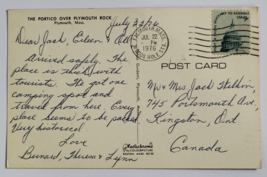 THE PORTICO OVER PLYMOUTH ROCK
Plymouth, Mass.
July 22/76
Dear Jack, Eileen & All
Arrived safely. The
place is thick with
tourists. We got one
camping spot and
travel from here. Every
place seems to be packed
Very historical
Love
Bernard, Theresa & Lynn
1976
POST CARD
Mr & Mrs Jack
745 Portsmouth Ave,
Kingston, Ont
Canada